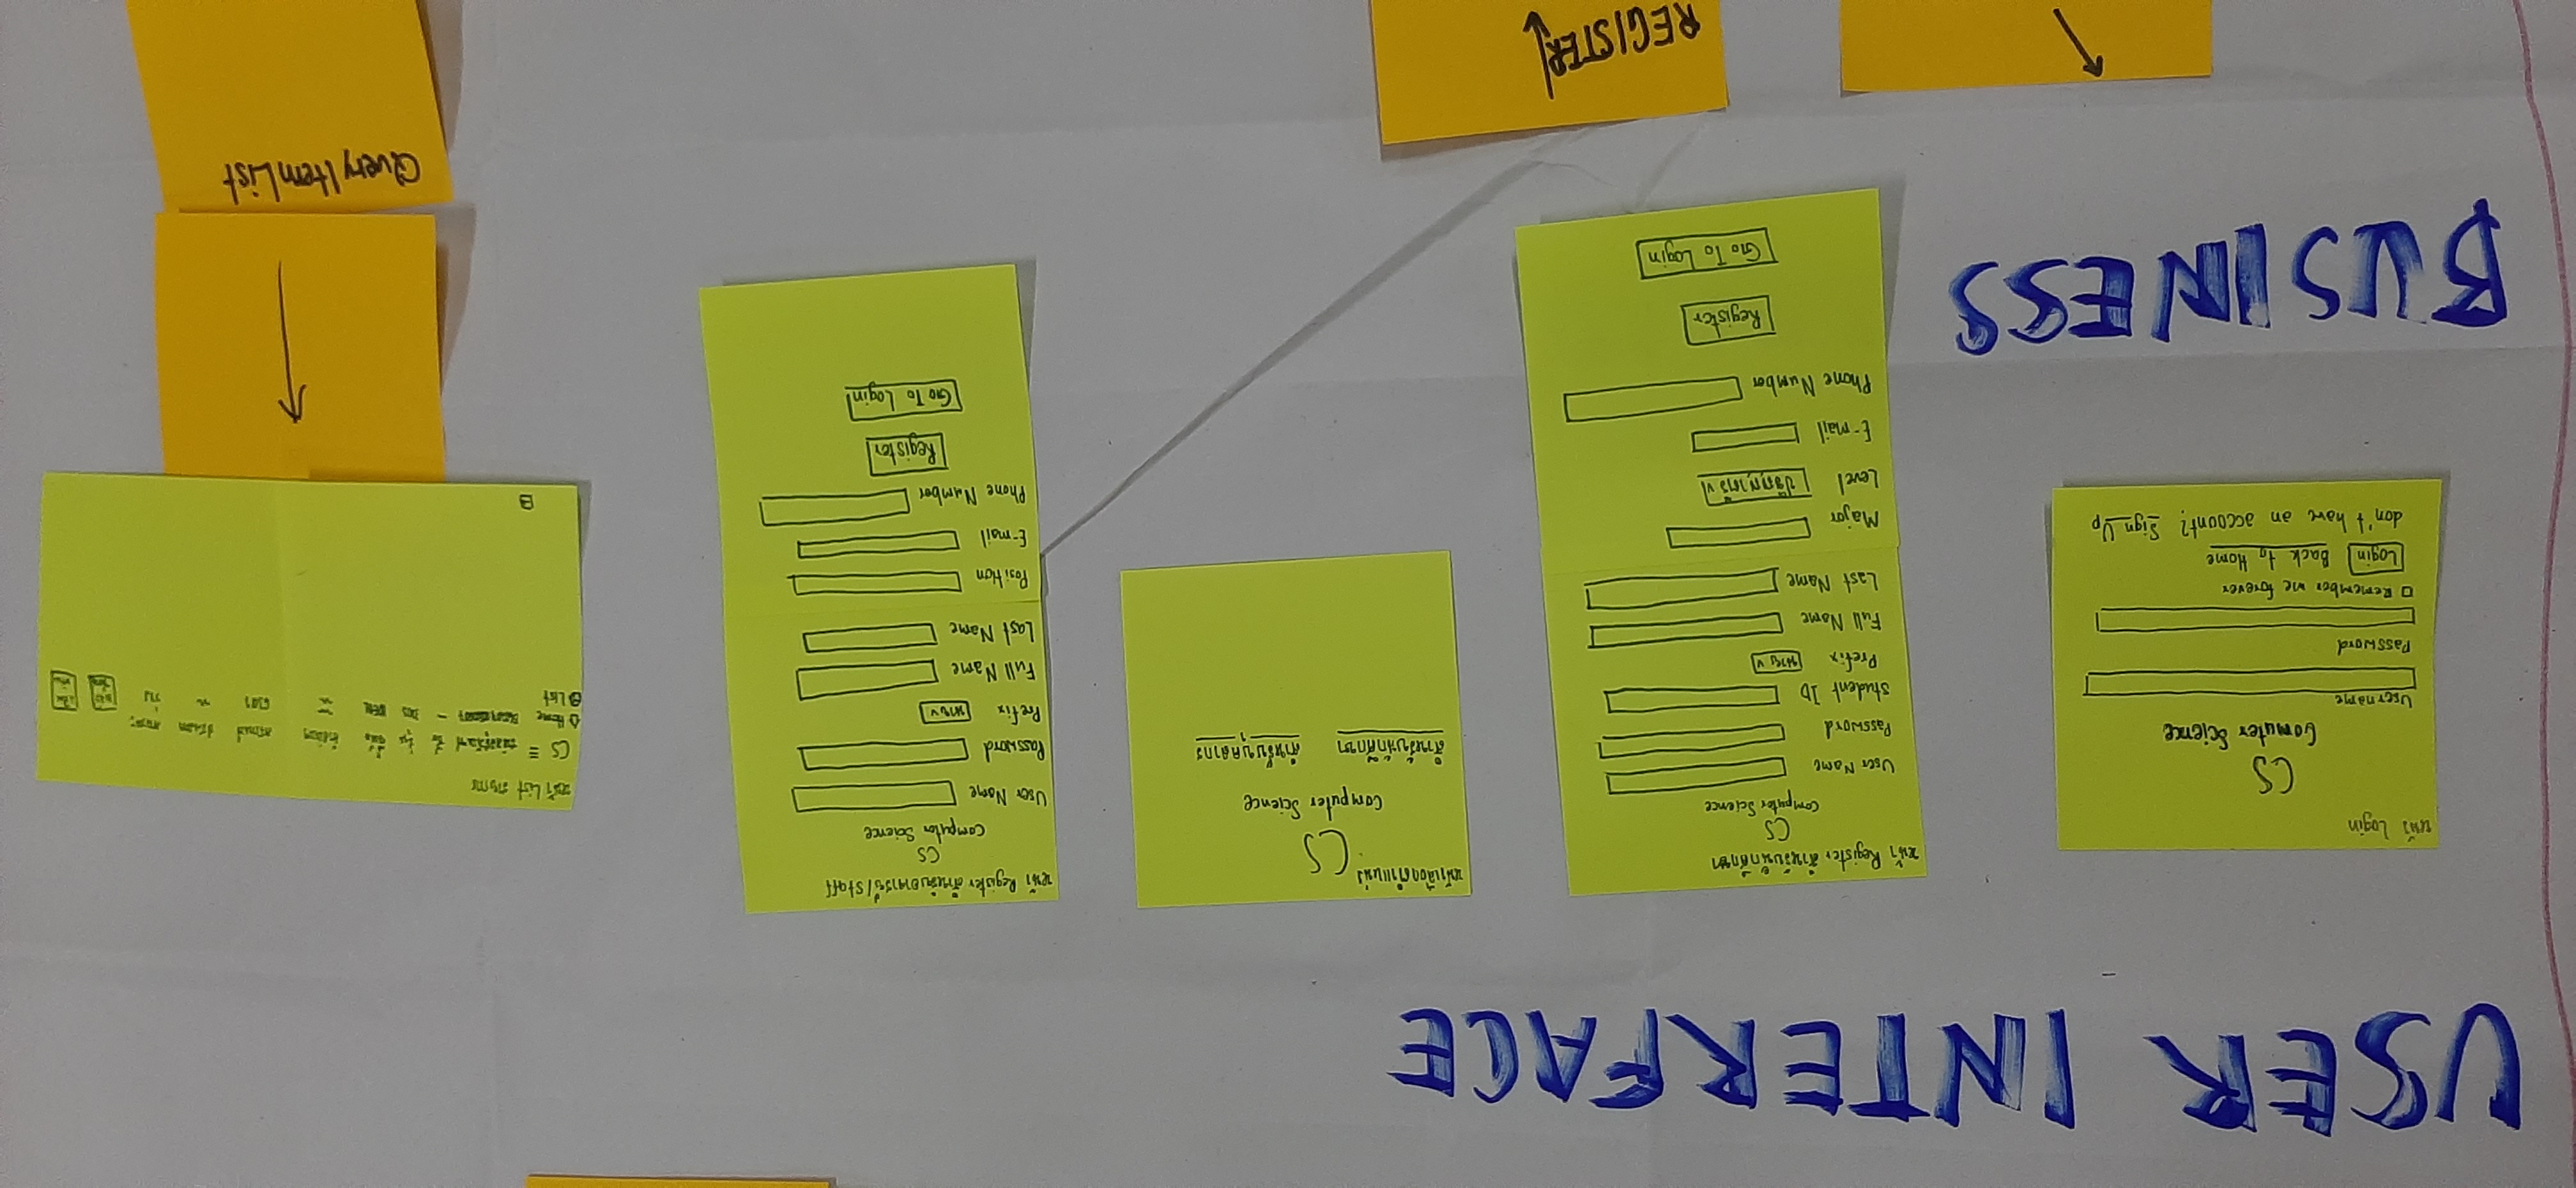 USER INTERFACE
หน้า Login
CS
Comuter Science
Username
Password
Remember me forever
Login Back to Home
don't have an account? Sign Up
หน้า Register สำหรับนักศึกษา
CS
Computer Science
User Name
Password
Student ID
Prefix นาย v
Full Name
Last Name
Major
Level ปริญญาตรี v
E-mail
Phone Number
Register
Go To Login
หน้าเลือกตำแหน่ง
CS
Computer Science
สำหรับนักศึกษา สำหรับบุคลากร
หน้า Register สำหรับอาจารย์/Staff
CS
Computer Science
User Name
Password
Prefix นาย v
Full Name
Last Name
Position
E-mail
Phone Number
Register
Go To Login
หน้า List รายการ
CS ชื่อ รุ่น ยี่ห้อ สถานที่
Home
List
BUSINESS
REGISTER
QueryItemList